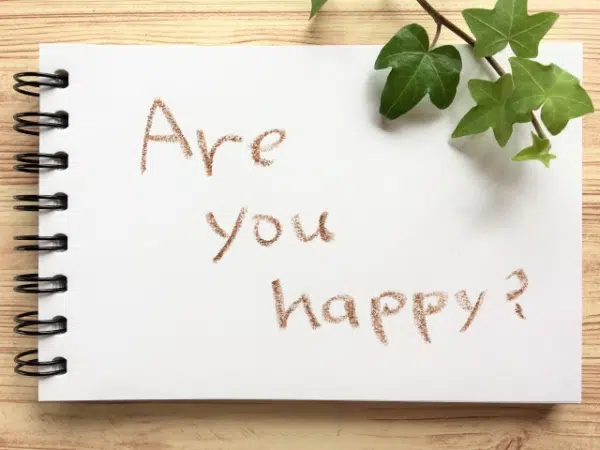 Are
you
happy?